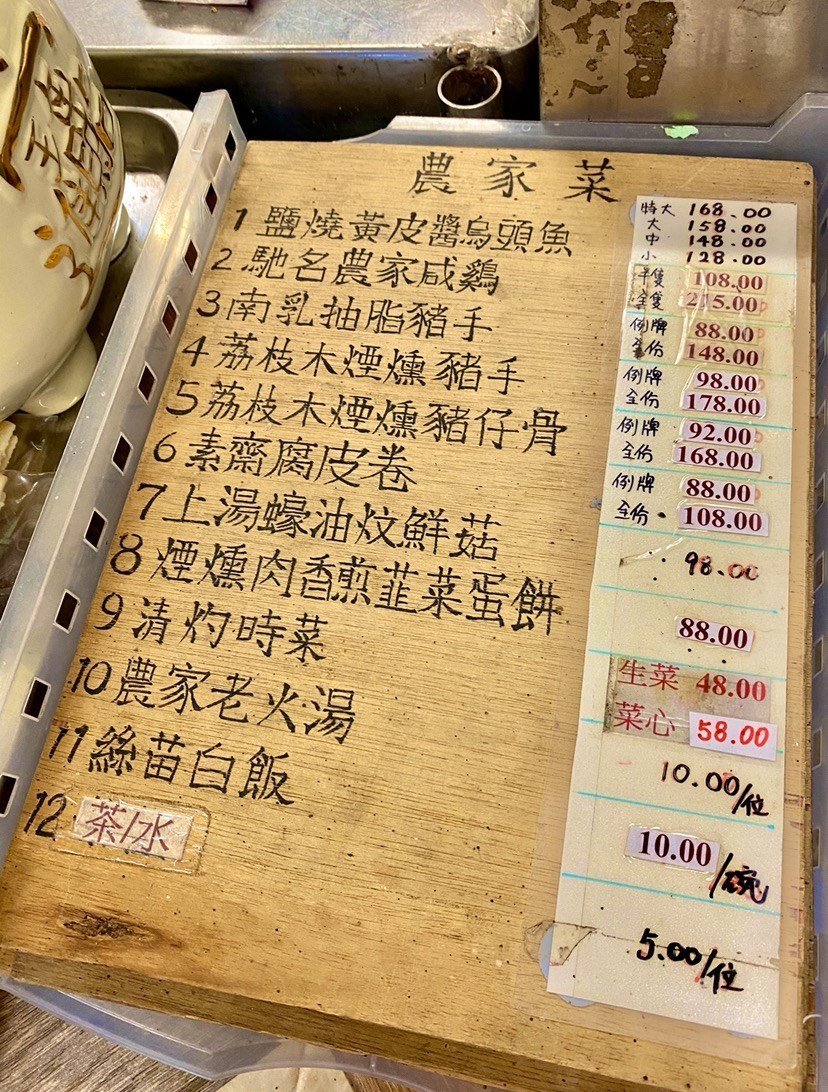 農家菜
1 鹽燒黃皮醬烏頭魚
特大 168.00
大 158.00
中 148.00
小 128.00
2 馳名農家咸鷄
半隻 108.00
全隻 215.00
3 南乳抽脂豬手
例牌 88.00
全份 148.00
4 荔枝木煙燻豬手
例牌 98.00
全份 178.00
5 荔枝木煙燻豬仔骨
例牌 92.00
全份 168.00
6 素齋腐皮卷
例牌 88.00
全份 108.00
7 上湯蠔油炆鮮菇
98.00
8 煙燻肉香煎韮菜蛋餅
88.00
9 清灼時菜
生菜 48.00
菜心 58.00
10 農家老火湯
10.00/位
11 絲苗白飯
10.00/碗
12 茶/水
5.00/位